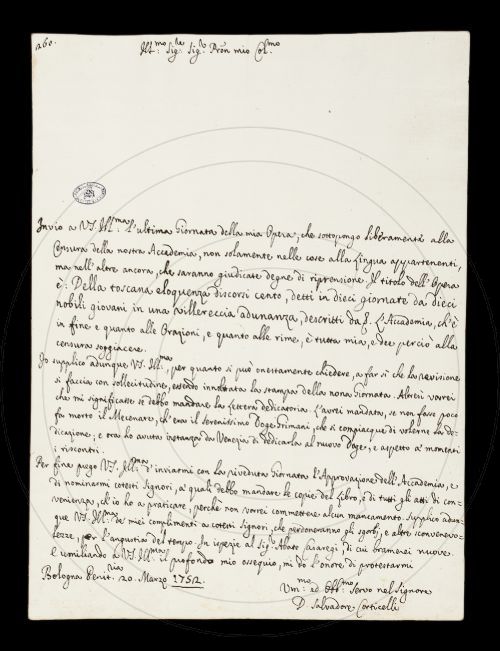 260.
Ill:mo Sig:re Sig:r Pron mio Col:mo
Invio a VS. Ill:ma l'ultima Giornata della mia Opera, che sottopongo liberamente alla
Censura della nostra Accademia, non solamente nelle cose alla Lingua appartenenti,
ma nell'altre ancora, che saranno giudicate degne di riprensione. Il titolo dell'Opera
è: Della toscana eloquenza discorsi cento, detti in dieci giornate da dieci
nobili giovani in una villereccia adunanza, descritti da &. L'Accademia, ch'è
in fine e quanto alle Orazioni, e quanto alle rime, è tutta mia, e dee perciò alla
censura soggiacere.
Io supplico adunque VS. Ill:ma, per quanto si può onestamente chiedere, a far sì che la revisione
si faccia con sollecitudine, essendo innoltrata la stampa della nona Giornata. Altresì vorrei
che mi significasse se debbo mandare la lettera dedicatoria. L'avrei mandata, se non fosse poco
fa morto il Mecenate, ch'era il serenissimo Doge Grimani, che si compiacque di volerne la de-
dicazione; e ora ho avuta instanza da Venezia di dedicarla al nuovo Doge, e aspetto a' momenti
i riscontri.
Per fine priego VS. Ill:ma d'inviarmi con la riveduta Giornata l'Approvazione dell'Accademia, e
di nominarmi cotesti Signori, a' quali debbo mandare le copie del Libro, e di tutti gli atti di con-
venienza, ch'io ho a praticare, perchè non vorrei commettere alcun mancamento. Supplico adun-
que VS. Ill:ma de' miei complimenti a cotesti Signori, che perdoneranno gli sgorbj, e altre sconvenevo-
lezze, per l'angustia del tempo. In ispezie al Sig:r Abate di cui bramerei nuove.
E umiliando a VS. Ill:ma il profondo mio ossequio, mi do l'onore di protestarmi
Bologna Penit:ria 20. Marzo 1752.
Um:mo ed Obb:mo Servo nel Signore
D. Salvadore Corticelli